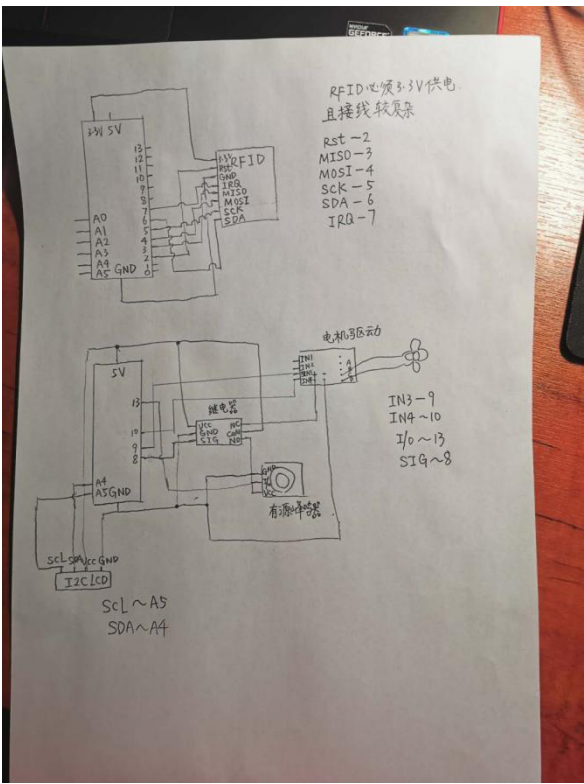 GEFORCE
RFID必须3.3V供电
且接线较复杂
Rst-2
MISO-3
MOSI-4
SCK-5
SDA-6
IRQ-7
3.3V 5V
13
12
11
10
9
8
7
6
5
4
3
2
1
0
A0
A1
A2
A3
A4
A5
GND
RFID
3.3V
Rst
GND
IRQ
MISO
MOSI
SCK
SDA
电机驱动
IN1
IN2
IN3
IN4
IN3-9
IN4~10
I/O~13
SIG~8
5V
13
10
9
8
A4
A5 GND
继电器
VCC
GND
SIG
NC
COM
NO
GND
VCC
有源蜂鸣器
SCL SDA VCC GND
I2C LCD
SCL~A5
SDA~A4